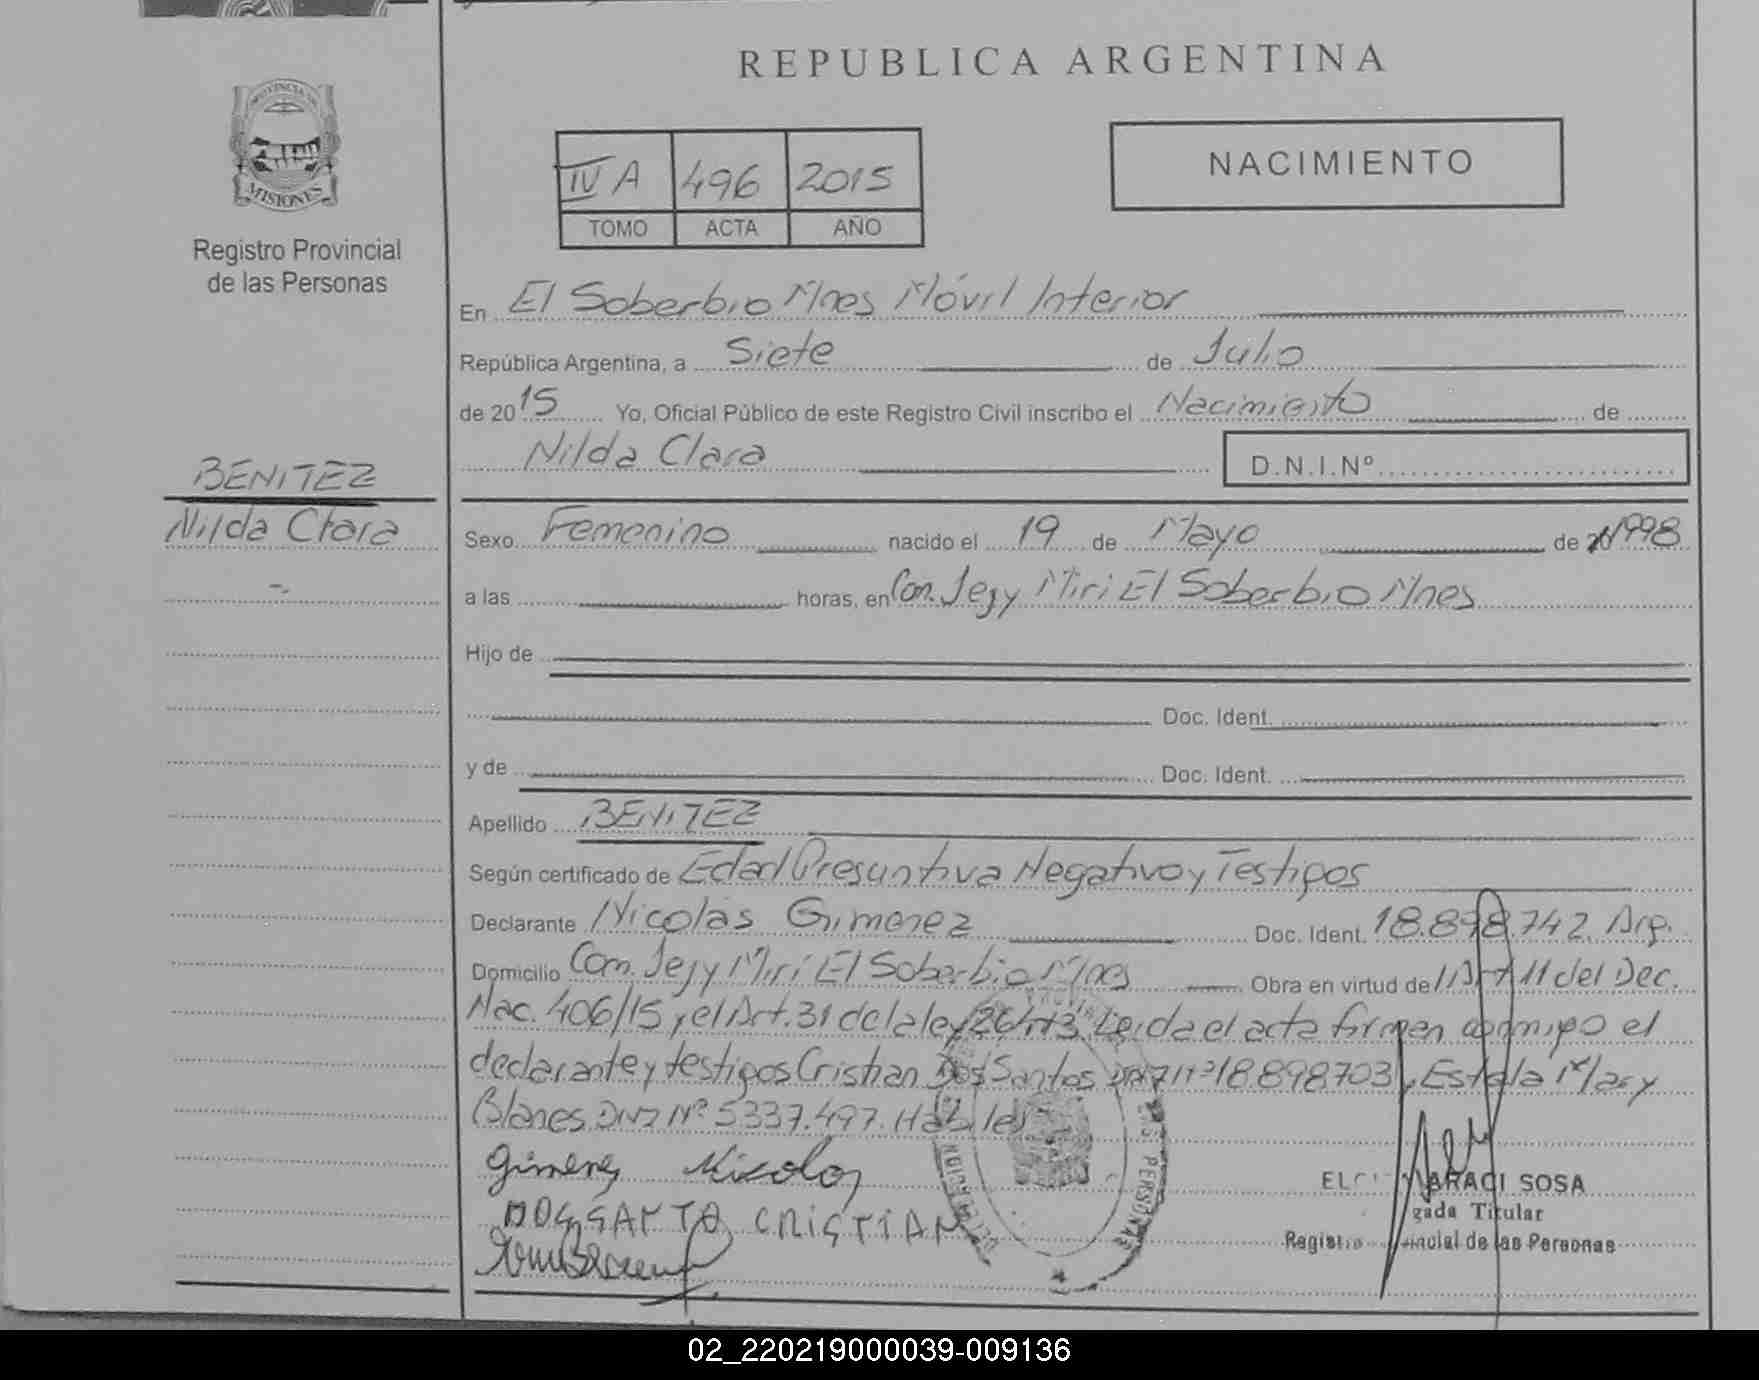 REPUBLICA ARGENTINA
PROVINCIA DE
MISIONES
Registro Provincial
de las Personas
IV A 496 2015
TOMO ACTA AÑO
NACIMIENTO
En El Soberbio Mnes Móvil Interior
República Argentina, a Siete de Julio
de 2015 Yo, Oficial Público de este Registro Civil inscribo el Nacimiento de
Nilda Clara D.N.I.Nº
BENITEZ
Nilda Clara
Sexo Femenino nacido el 19 de Mayo de 1998
a las horas, en Com. Jejy Miri El Soberbio Mnes
Hijo de
Doc. Ident.
y de Doc. Ident.
Apellido BENITEZ
Según certificado de Edad Presuntiva Negativo y Testigos
Declarante Nicolás Gimenez Doc. Ident. 18.898.742 Arg.
Domicilio Com. Jejy Miri El Soberbio Mnes Obra en virtud del Art 11 del Dec.
Nac. 406/15, el Art. 31 de la ley 26413 Leida el acta firman conmigo el
declarante y testigos Cristian Dos Santos DNI Nº 18898703, Estela Mary
Blanes DNI Nº 5337.497. Habiles
Gimenez Nicolas
DOSSANTO CRISTIAN
ARACI SOSA
gada Titular
Registro incial de las Personas
02_220219000039-009136